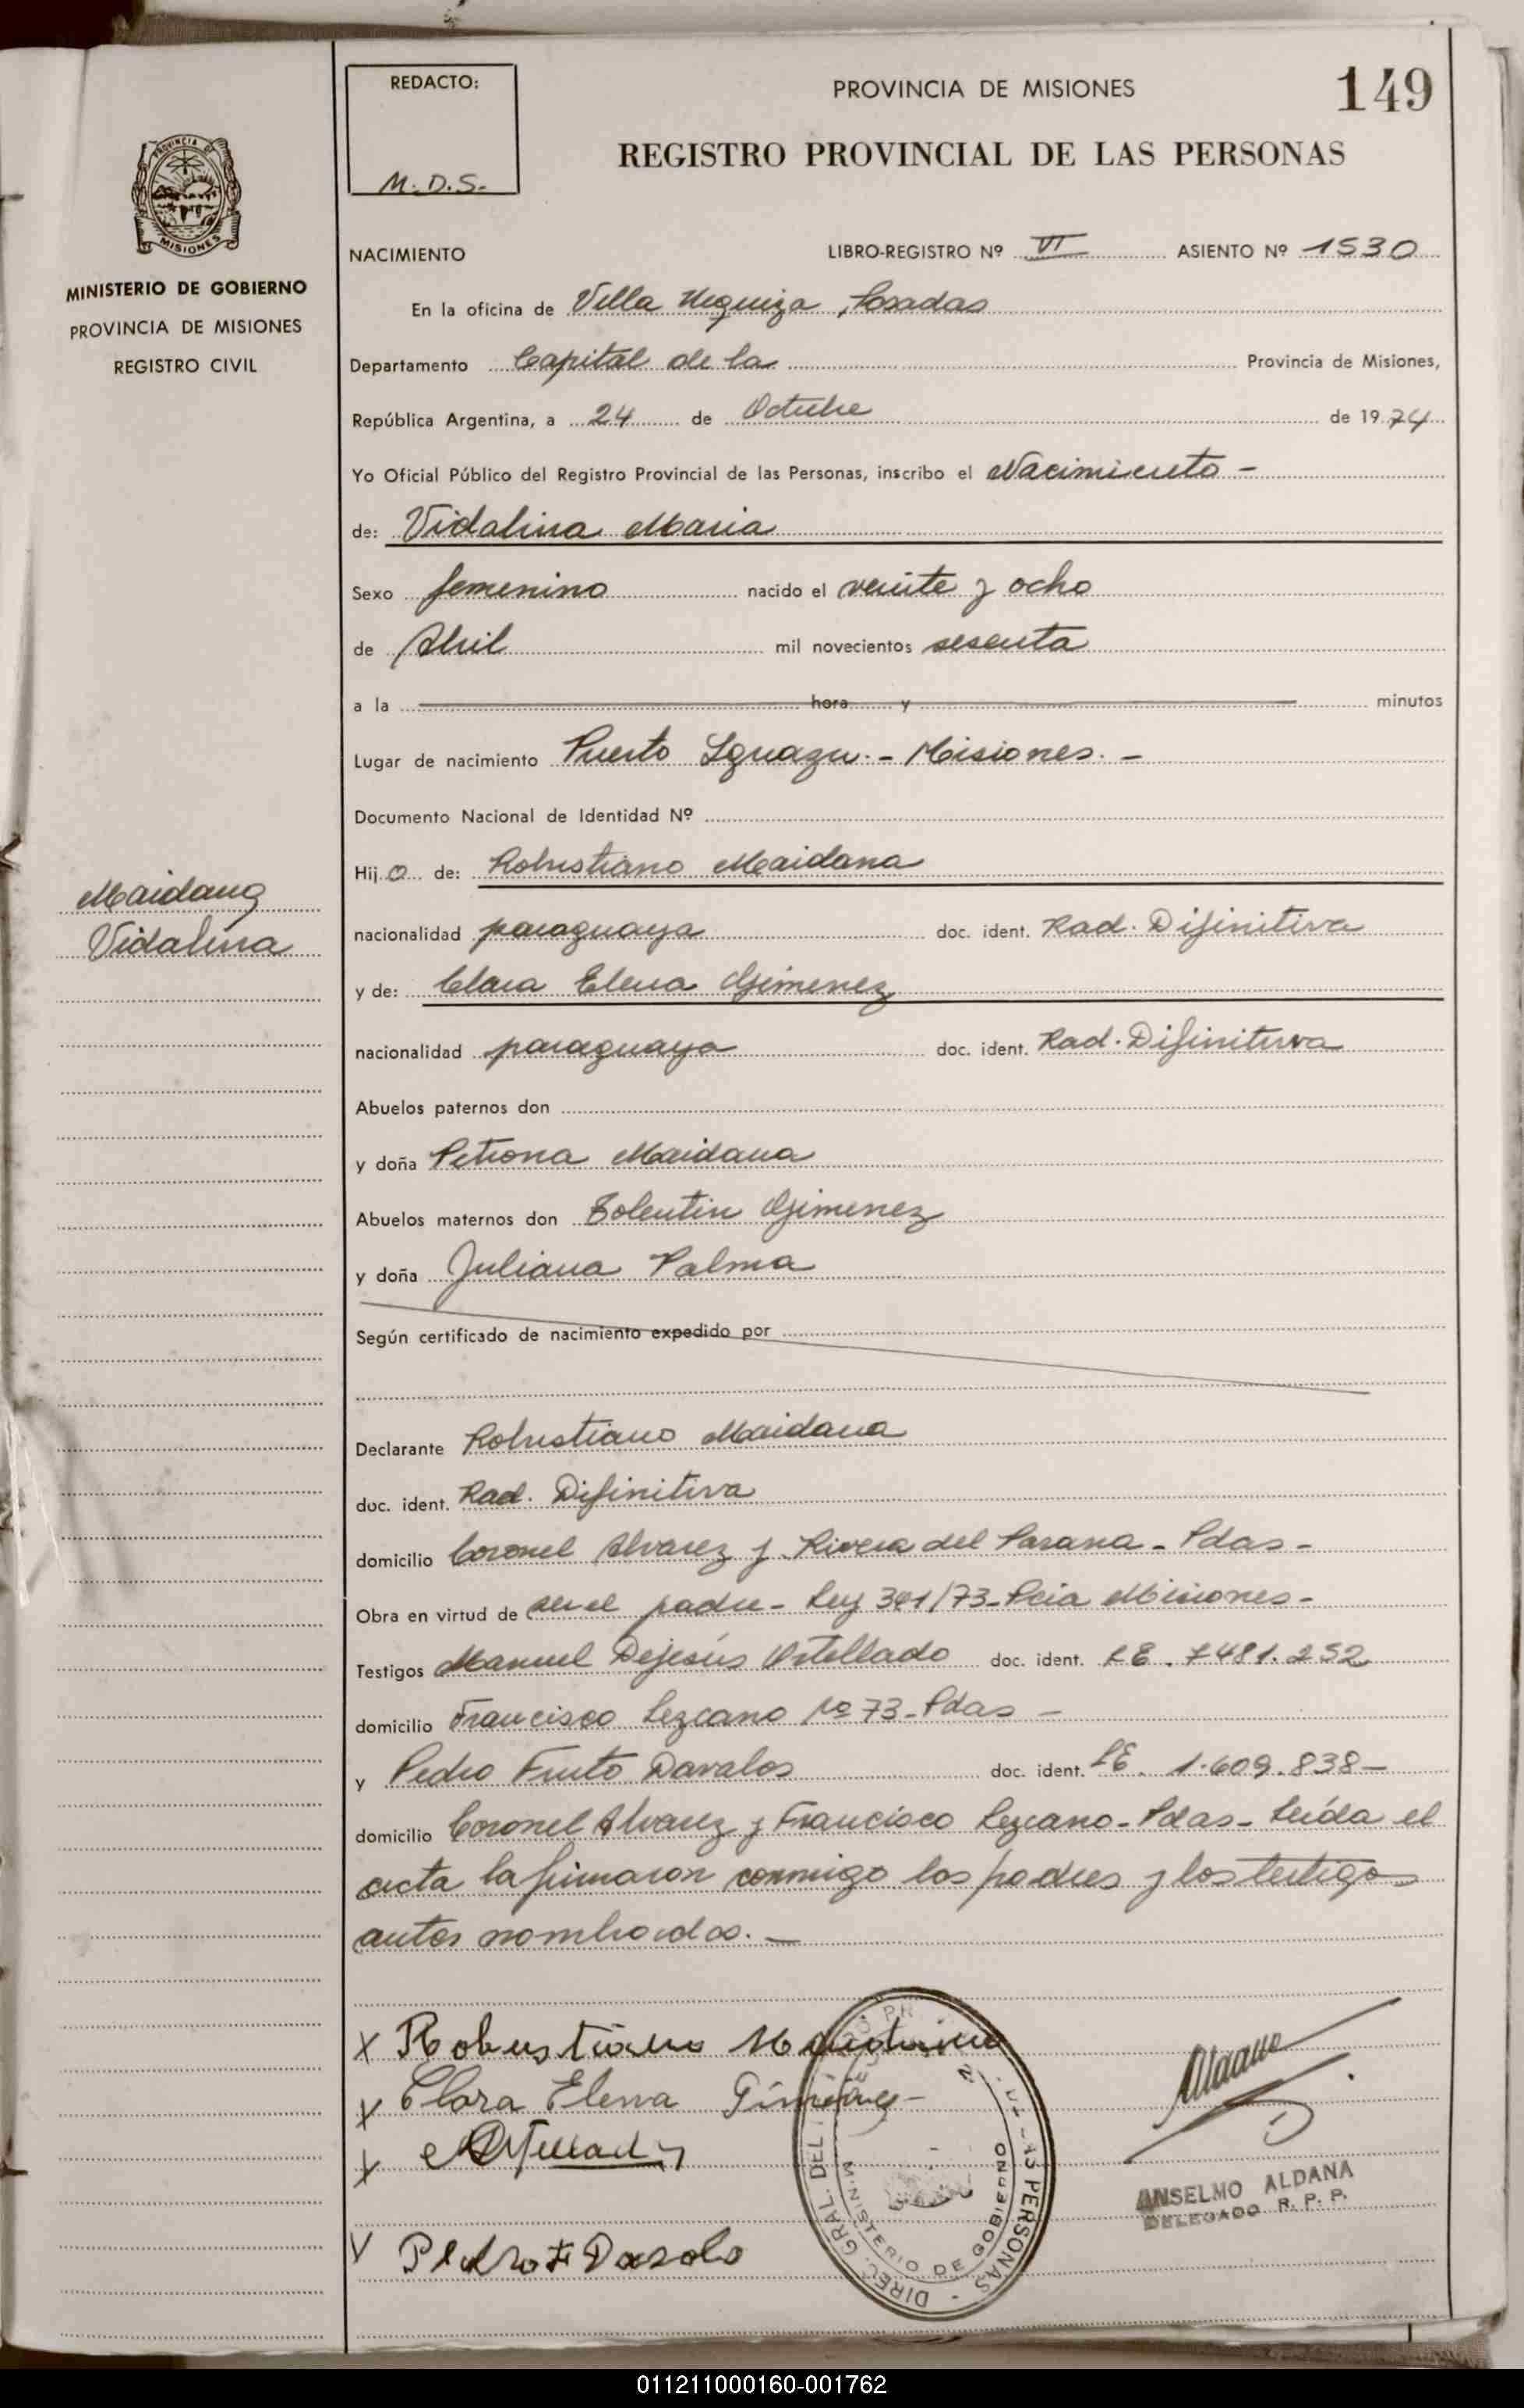 REDACTO:
M.D.S.
PROVINCIA DE MISIONES
149
REGISTRO PROVINCIAL DE LAS PERSONAS
MISIONES
MINISTERIO DE GOBIERNO
PROVINCIA DE MISIONES
REGISTRO CIVIL
NACIMIENTO LIBRO-REGISTRO Nº VI ASIENTO Nº 1530
En la oficina de Villa Urquiza, Posadas
Departamento Capital de la Provincia de Misiones,
República Argentina, a 24 de Octubre de 1974
Yo Oficial Público del Registro Provincial de las Personas, inscribo el Nacimiento -
de: Vidalina Maria
Sexo femenino nacido el veinte y ocho
de Abril mil novecientos sesenta
a la hora y minutos
Lugar de nacimiento Puerto Iguazu.- Misiones.-
Documento Nacional de Identidad Nº
Hijo de: Robustiano Maidana
Maidana
Vidalina
nacionalidad paraguaya doc. ident. Rad. Difinitiva
y de: Clara Elena Gimenez
nacionalidad paraguaya doc. ident. Rad. Difinitiva
Abuelos paternos don
y doña Petrona Maidana
Abuelos maternos don Tolentin Gimenez
y doña Juliana Palma
Según certificado de nacimiento expedido por
Declarante Robustiano Maidana
doc. ident. Rad. Difinitiva
domicilio Coronel Alvarez y Rivera del Parana - Pdas -
Obra en virtud de ser el padre - Ley 341/73 - Pcia Misiones -
Testigos Manuel Dejesús Ortellado doc. ident. LE. 7481.252
domicilio Francisco Lezcano Nº 73 - Pdas -
y Pedro Fruto Davalos doc. ident. LE. 1.609.838 -
domicilio Coronel Alvarez y Francisco Lezcano - Pdas - Leída el
acta la firmaron conmigo los padres y los testigos
antes nombrados. -
X Robustiano Maidana
X Clara Elena Gimenez -
X
Pedro F Davalo
DIREC. GRAL. DEL PERSONAS
MINISTERIO DE GOBIERNO
Aldana
ANSELMO ALDANA
DELEGADO R. P. P.
011211000160-001762